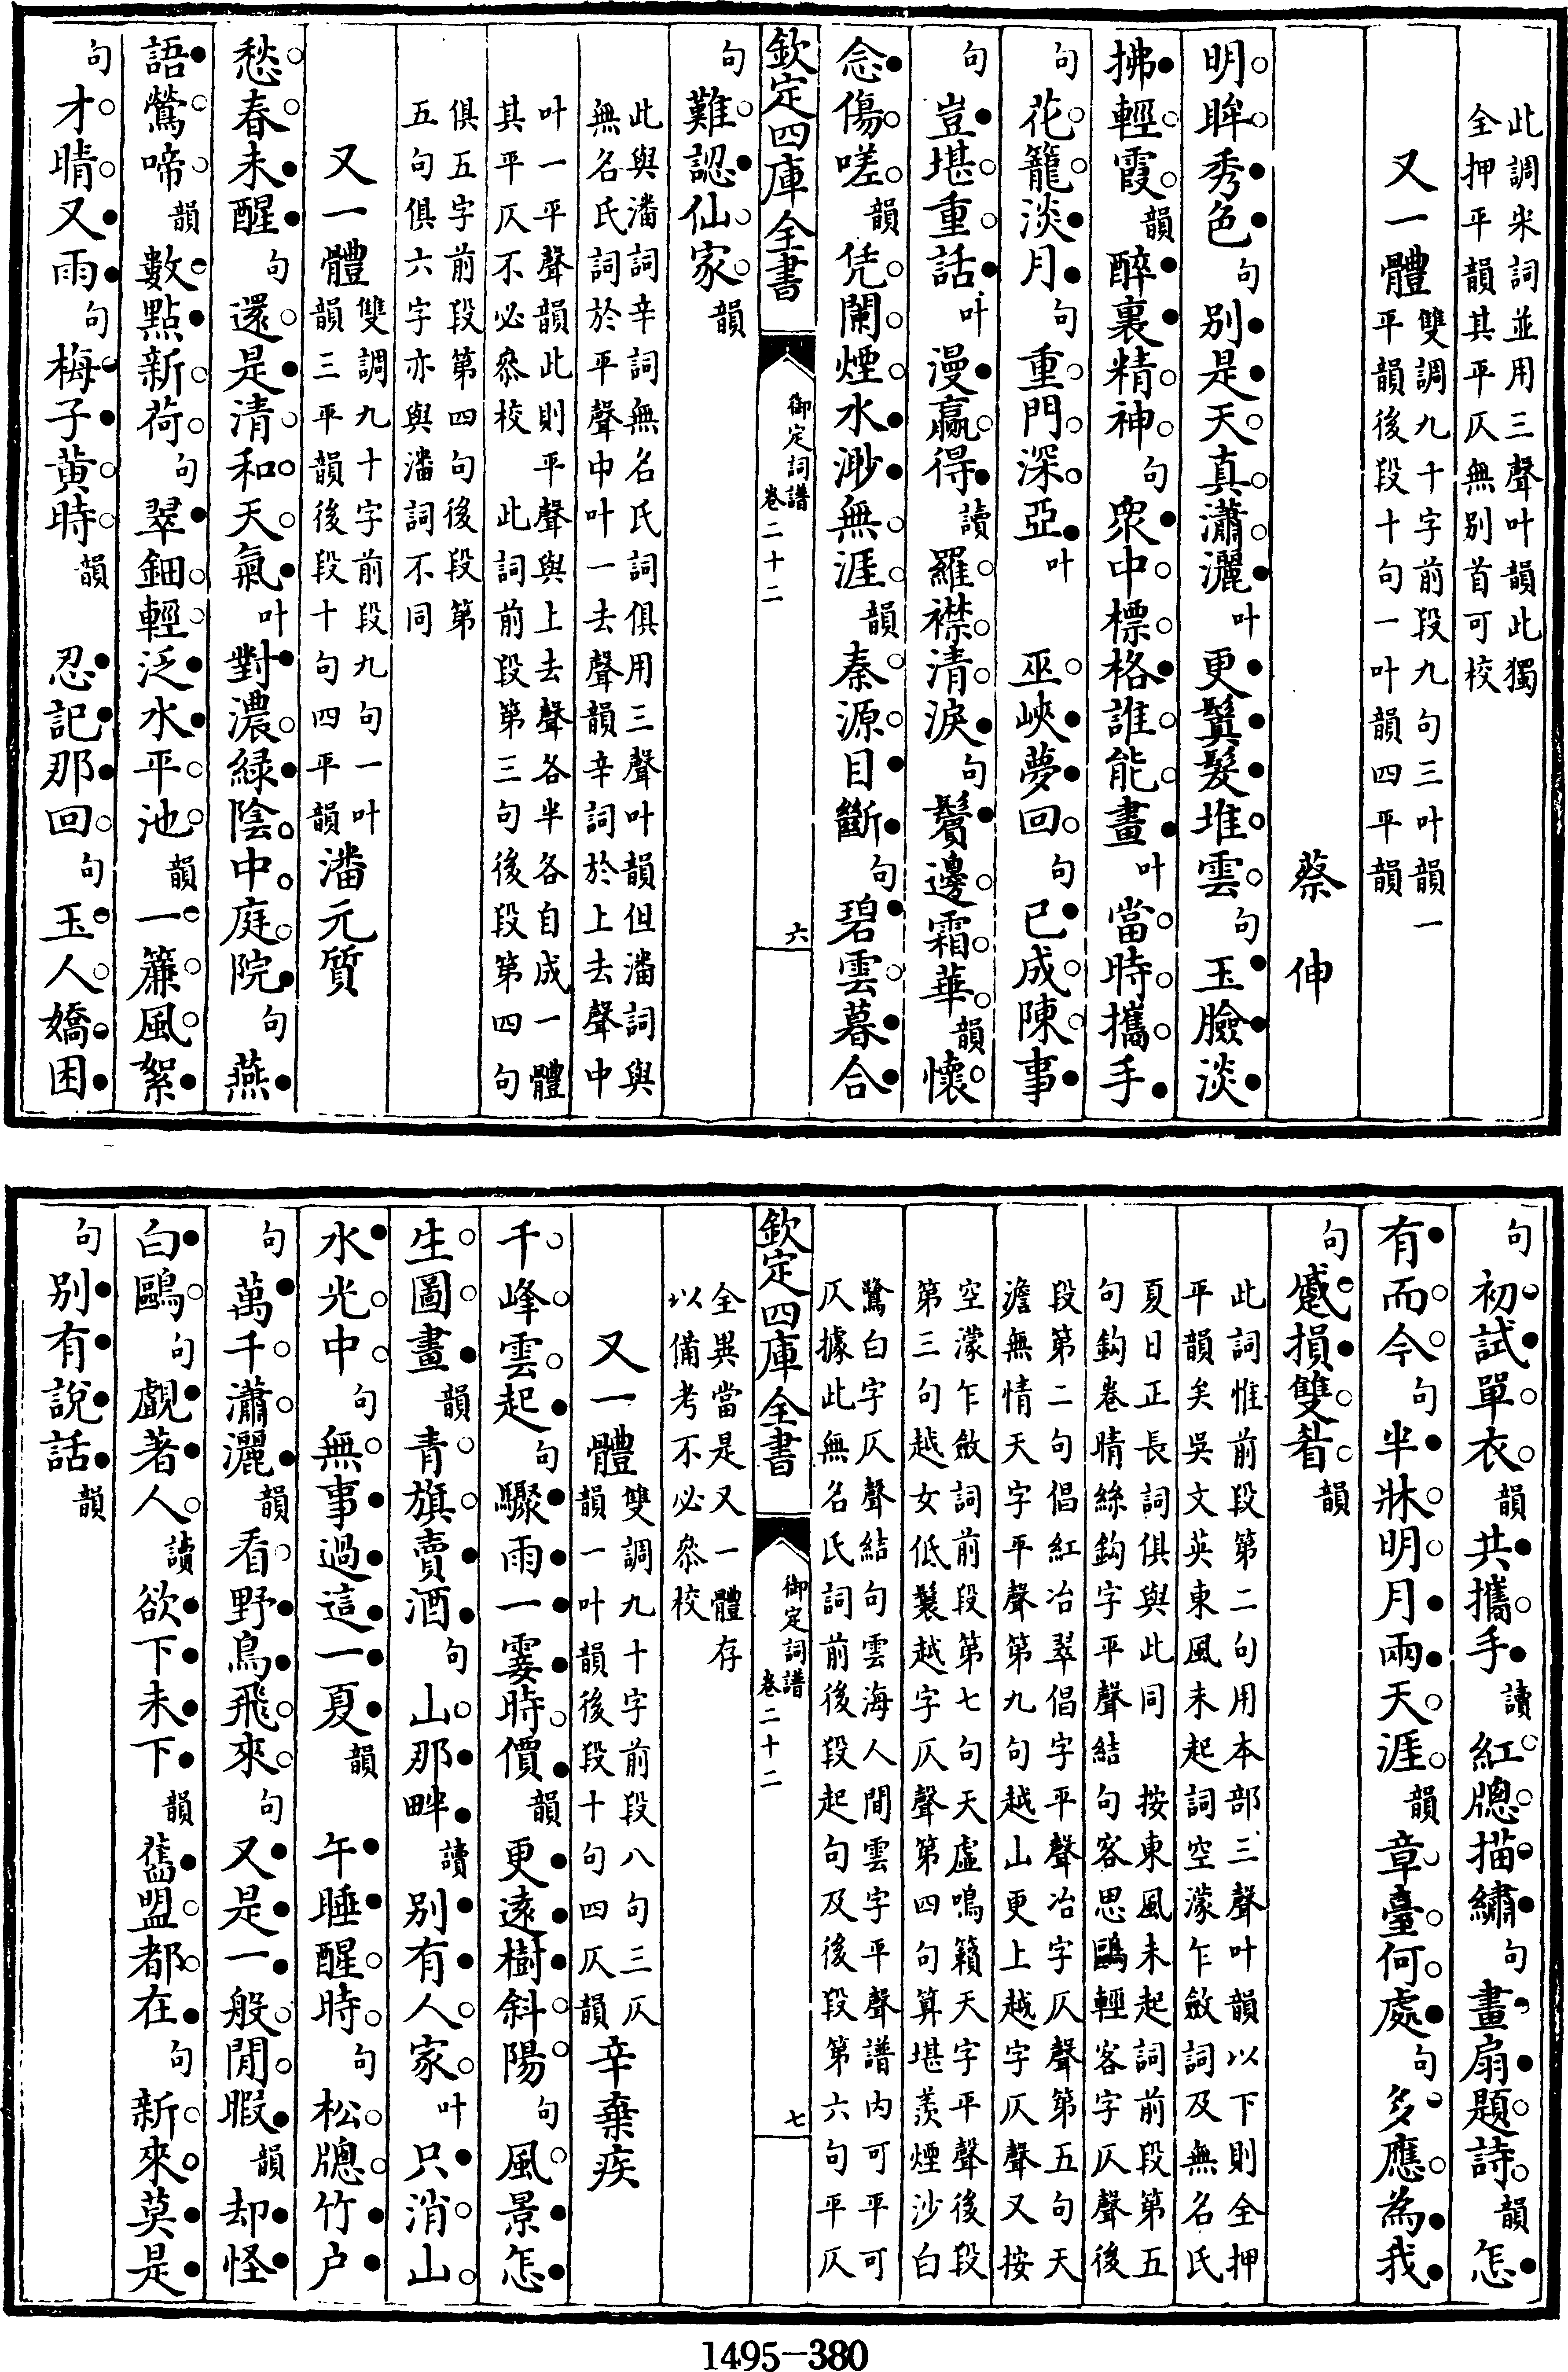 此調宋詞並用三聲叶韻此獨
全押平韻其平仄無別首可校
又一體雙調九十字前段九句三叶韻一
平韻後段十句一叶韻四平韻
蔡伸
明眸秀色句別是天真瀟灑叶更鬒髮堆雲句玉臉淡
拂輕霞韻醉裏精神句衆中標格誰能畫叶當時攜手
句花籠淡月句重門深亞叶 巫峽夢回句已成陳事
句豈堪重話叶漫贏得讀羅襟清淚句鬢邊霜華韻懷
念傷嗟韻凭闌煙水渺無涯韻秦源目斷句碧雲暮合
欽定四庫全書 御定詞譜 卷二十二 六
句難認仙家韻
此與潘詞辛詞無名氏詞俱用三聲叶韻但潘詞與
無名氏詞於平聲中叶一去聲韻辛詞於上去聲中
叶一平聲韻此則平聲與上去聲各半各自成一體
其平仄不必叅校 此詞前段第三句後段第四句
俱五字前段第四句後段第
五句俱六字亦與潘詞不同
又一體雙調九十字前段九句一叶
韻三平韻後段十句四平韻潘元質
愁春未醒句還是清和天氣叶對濃緑陰中庭院句燕
語鶯啼韻數點新荷句翠鈿輕泛水平池韻一簾風絮
句才晴又雨句梅子黃時韻 忍記那回句玉人嬌困
句初試單衣韻共攜手讀紅牕描繡句畫扇題詩韻怎
有而今句半牀明月兩天涯韻章臺何處句多應為我
句蹙損雙眉韻
此詞惟前段第二句用本部三聲叶韻以下則全押
平韻矣吳文英東風未起詞空濛乍斂詞及無名氏
夏日正長詞俱與此同 按東風未起詞前段第五
句鈎卷晴絲鈎字平聲結句客思鷗輕客字仄聲後
段第二句倡紅冶翠倡字平聲冶字仄聲第五句天
澹無情天字平聲第九句越山更上越字仄聲又按
空濛乍斂詞前段第七句天虛鳴籟天字平聲後段
第三句越女低鬟越字仄聲第四句算堪羨煙沙白
鷺白字仄聲結句雲海人間雲字平聲譜內可平可
仄據此無名氏詞前後段起句及後段第六句平仄
欽定四庫全書 御定詞譜 卷二十二 七
全異當是又一體存
以備考不必叅校
又一體雙調九十字前段八句三仄
韻一叶韻後段十句四仄韻辛棄疾
千峰雲起句驟雨一霎時價韻更遠樹斜陽句風景怎
生圖畫韻青旗賣酒句山那畔讀別有人家叶只消山
水光中句無事過這一夏韻 午睡醒時句松牕竹戶
句萬千瀟灑韻看野鳥飛來句又是一般閒暇韻却怪
白鷗句覷著人讀欲下未下韻舊盟都在句新來莫是
句別有說話韻
1495-380